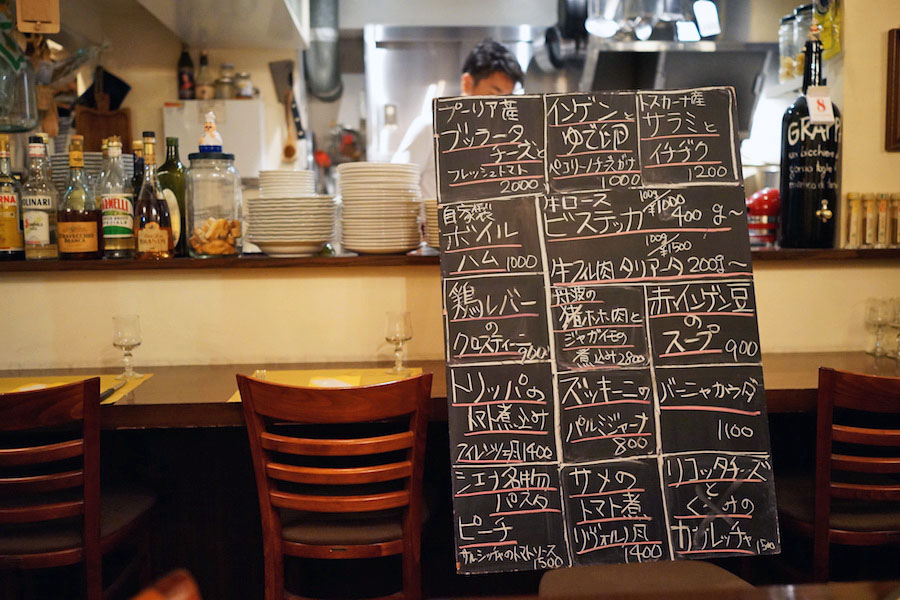 プーリア産
ブッラータ
チーズと
フレッシュトマト
2000
インゲンと
ゆで卵
ペコリーノチーズがけ
1000
トスカーナ産
サラミと
イチヂク
1200
自家製
ボイル
ハム 1000
牛ロース 100g ¥1000
ビステッカ 400g～
100g ¥1500
牛フィレ肉 タリアータ 200g～
鶏レバー
の
クロスティーニ
900
丹波の
猪ホホ肉と
ジャガイモの
煮込み 2800
赤インゲン豆
の
スープ 900
トリッパの
トマト煮込み
フィレンツェ風 1400
ズッキーニの
パルミジャーナ
800
バーニャカウダ
1100
シエナ名物
パスタ
ピーチ
サルシッチャのトマトソース
1500
サメの
トマト煮
リヴォルノ風
1400
リコッタチーズ
と
くるみの
カルレッチャ
1500
GRAPPA
un bicchiere
8
MOLINARI